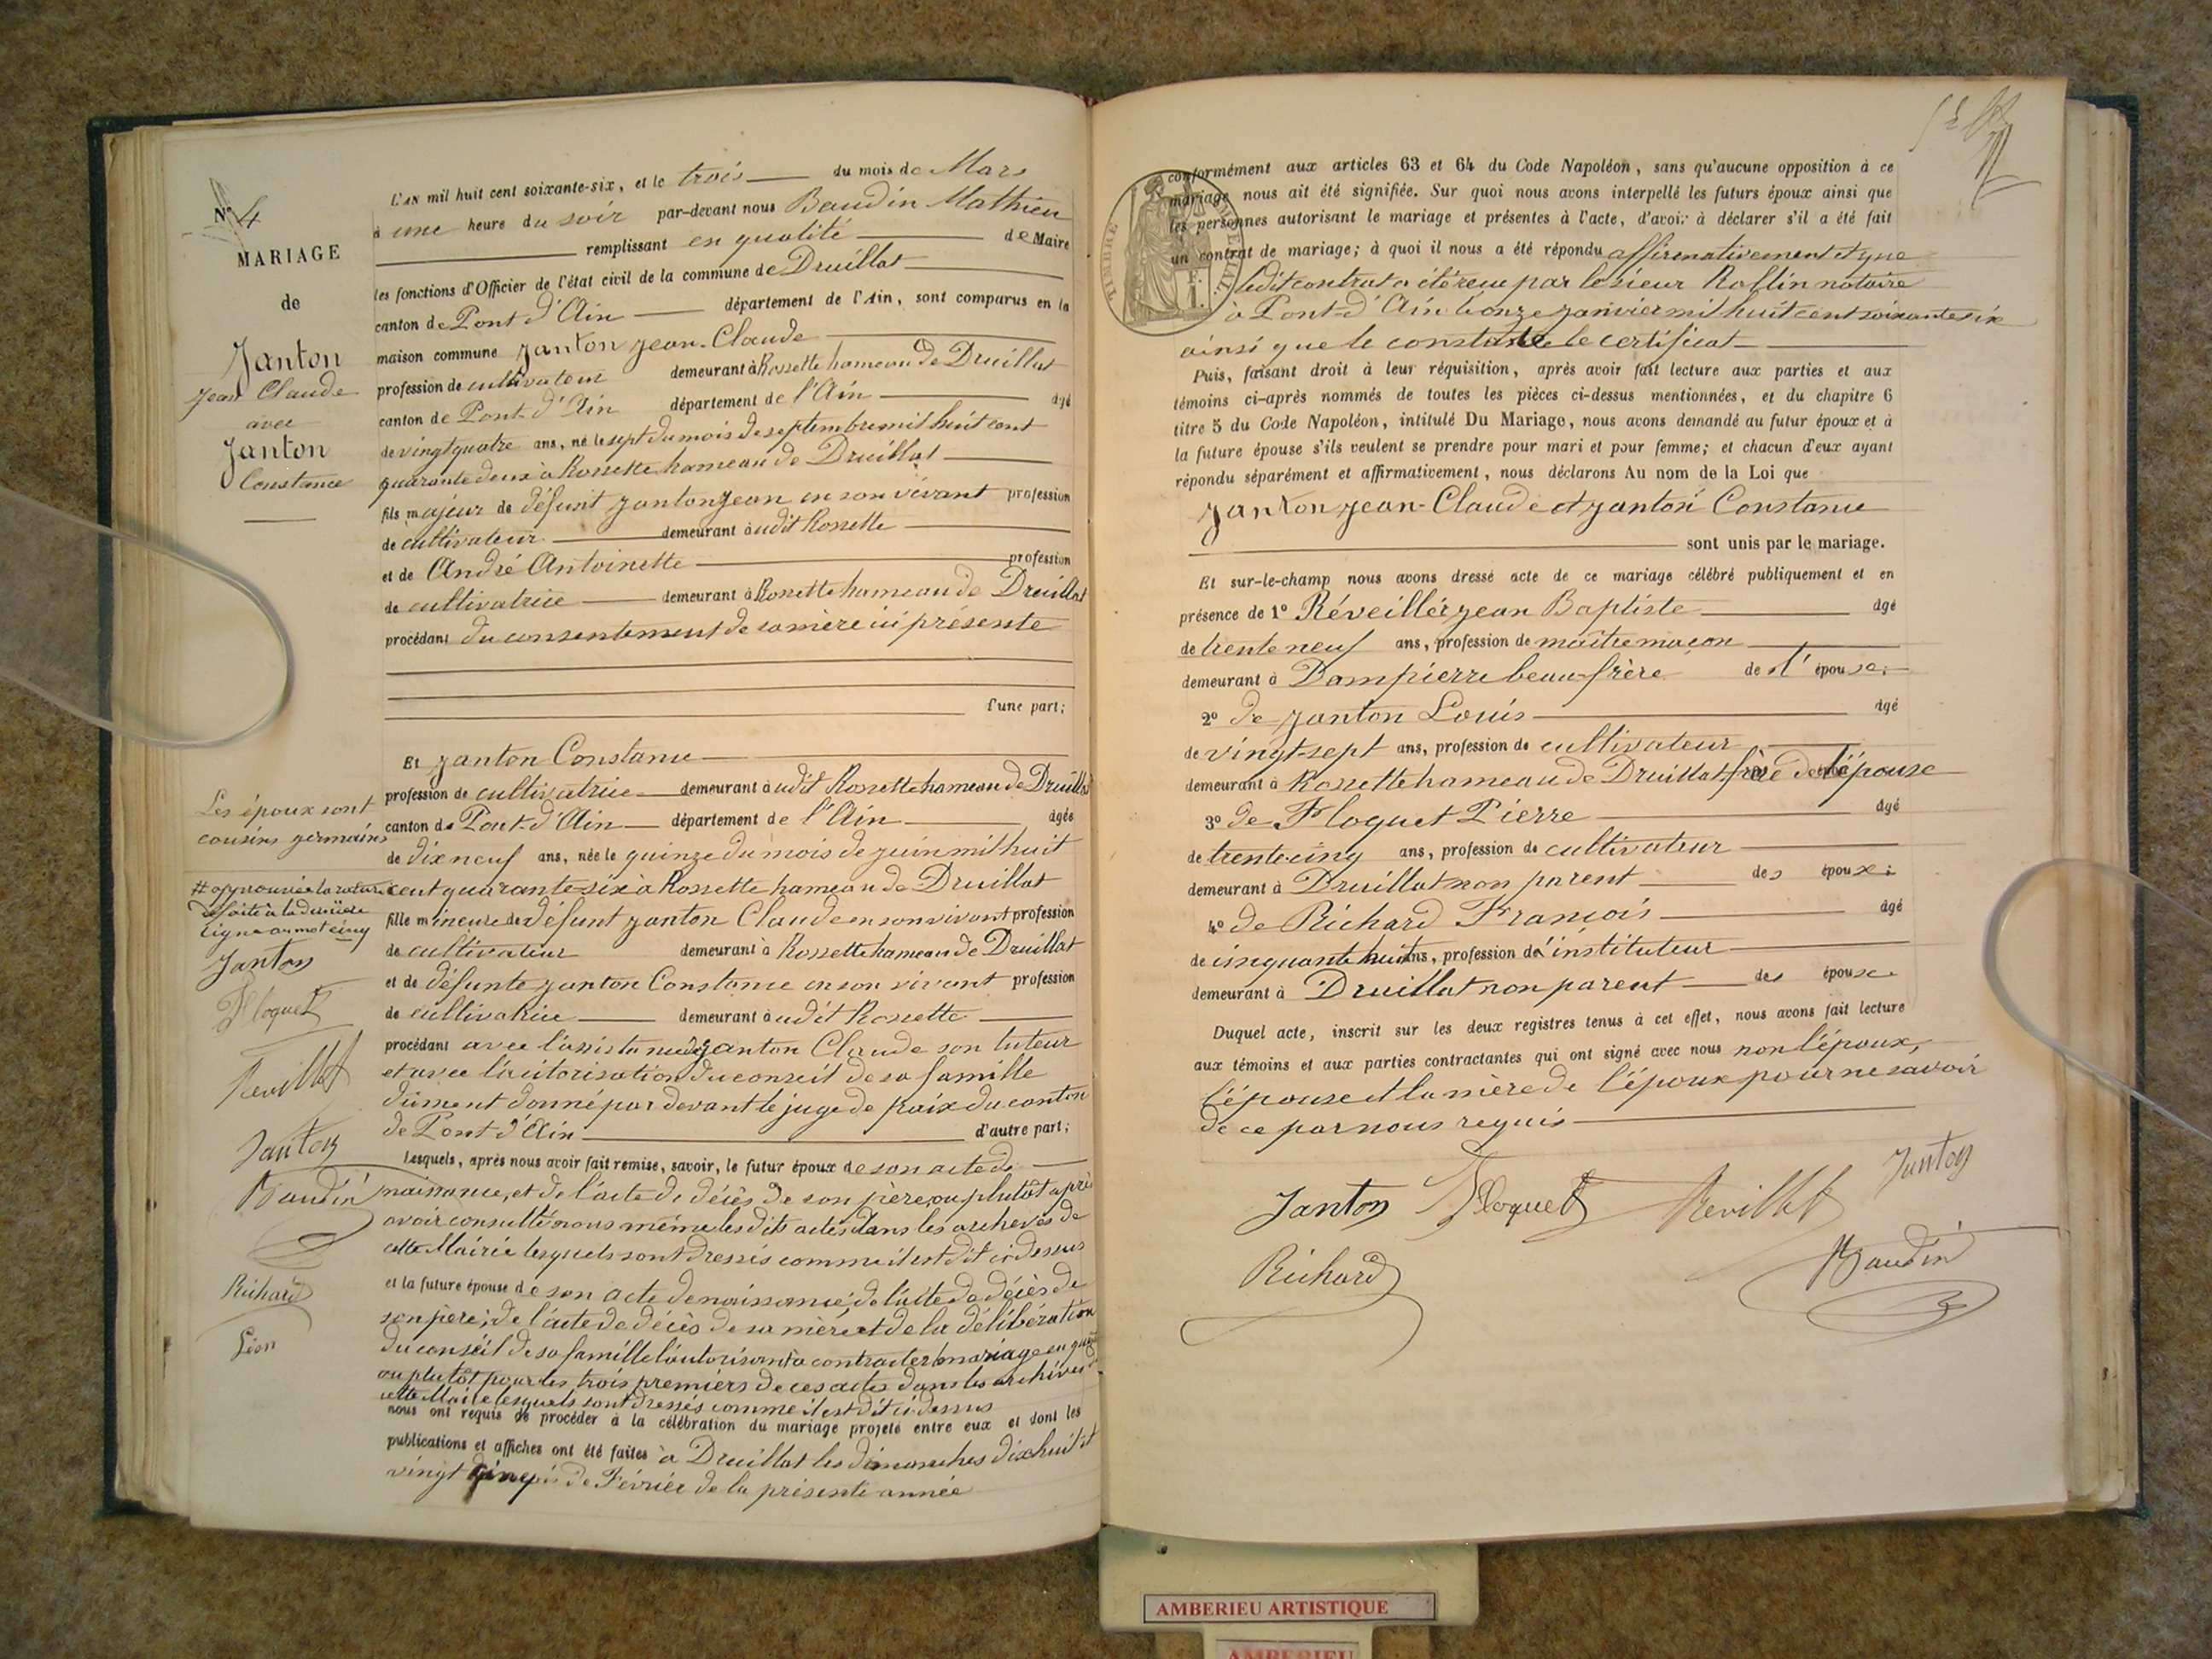 N° 4
MARIAGE
de
Janton
Jean Claude
avec
Janton
Constance
Les époux sont
cousins germains
# approuvée la rature
faite à la dernière
ligne au mot cinq
Janton
Floquet
Revillet
Janton
Baudin
Richard
Léon
L'AN mil huit cent soixante-six, et le trois du mois de Mars
à une heure du soir par-devant nous Baudin Mathieu
remplissant en qualité de Maire
les fonctions d'Officier de l'état civil de la commune de Druillat
canton de Pont d'Ain département de l'Ain, sont comparus en la
maison commune Janton Jean-Claude
profession de cultivateur demeurant à Rossette hameau de Druillat
canton de Pont-d'Ain département de l'Ain âgé
de vingt quatre ans, né le sept du mois de septembre mil huit cent
quarante deux à Rossette hameau de Druillat
fils majeur de défunt Janton Jean en son vivant profession
de cultivateur demeurant audit Rossette
et de André Antoinette profession
de cultivatrice demeurant à Rossette hameau de Druillat
procédant du consentement de sa mère ici présente
d'une part;
Et Janton Constance
profession de cultivatrice demeurant audit Rossette hameau de Druillat
canton de Pont-d'Ain département de l'Ain âgée
de dix neuf ans, née le quinze du mois de juin mil huit
cent quarante-six à Rossette hameau de Druillat
fille mineure de défunt Janton Claude en son vivant profession
de cultivateur demeurant à Rossette hameau de Druillat
et de défunte Janton Constance en son vivant profession
de cultivatrice demeurant audit Rossette
procédant avec l'assistance de Janton Claude son tuteur
et avec l'autorisation du conseil de sa famille
dûment donné par devant le juge de paix du canton
de Pont d'Ain d'autre part;
Lesquels, après nous avoir fait remise, savoir, le futur époux de son acte de
naissance, et de l'acte de décès de son père, ou plutôt après
avoir consulté nous même les dits actes dans les archives de
cette Mairie lesquels sont dressés comme il est dit ci-dessus
et la future épouse de son acte de naissance; de l'acte de décès de
son père; de l'acte de décès de sa mère et de la délibération
du conseil de sa famille l'autorisant à contracter mariage
ou plutôt pour les trois premiers de ces actes dans les archives de
cette Mairie lesquels sont dressés comme il est dit ci-dessus
nous ont requis de procéder à la célébration du mariage projeté entre eux et dont les
publications et affiches ont été faites à Druillat les dimanches dix huit et
vingt cinq de Février de la présente année
TIMBRE
1 F.
conformément aux articles 63 et 64 du Code Napoléon, sans qu'aucune opposition à ce
mariage nous ait été signifiée. Sur quoi nous avons interpellé les futurs époux ainsi que
les personnes autorisant le mariage et présentes à l'acte, d'avoir à déclarer s'il a été fait
un contrat de mariage; à quoi il nous a été répondu affirmativement et que
ledit contrat a été reçu par le sieur Rollin notaire
à Pont-d'Ain le onze janvier mil huit cent soixante six
ainsi que le constate le certificat
Puis, faisant droit à leur réquisition, après avoir fait lecture aux parties et aux
témoins ci-après nommés de toutes les pièces ci-dessus mentionnées, et du chapitre 6
titre 5 du Code Napoléon, intitulé Du Mariage, nous avons demandé au futur époux et à
la future épouse s'ils veulent se prendre pour mari et pour femme; et chacun d'eux ayant
répondu séparément et affirmativement, nous déclarons Au nom de la Loi que
Janton Jean-Claude et Janton Constance
sont unis par le mariage.
Et sur-le-champ nous avons dressé acte de ce mariage célébré publiquement et en
présence de 1° Réveillet Jean Baptiste âgé
de trente neuf ans, profession de maître maçon
demeurant à Dompierre beau-frère de l'épouse;
2° de Janton Louis âgé
de vingt-sept ans, profession de cultivateur
demeurant à Rossette hameau de Druillat frère de l'épouse
3° de Floquet Pierre âgé
de trente-cinq ans, profession de cultivateur
demeurant à Druillat non parent des époux;
4° de Richard François âgé
de cinquante huit ans, profession de l'instituteur
demeurant à Druillat non parent des époux
Duquel acte, inscrit sur les deux registres tenus à cet effet, nous avons fait lecture
aux témoins et aux parties contractantes qui ont signé avec nous non l'époux,
l'épouse et la mère de l'époux pour ne savoir
de ce par nous requis
Janton Floquet Revillet Janton
Richard Baudin
AMBERIEU ARTISTIQUE
AMBERIEU